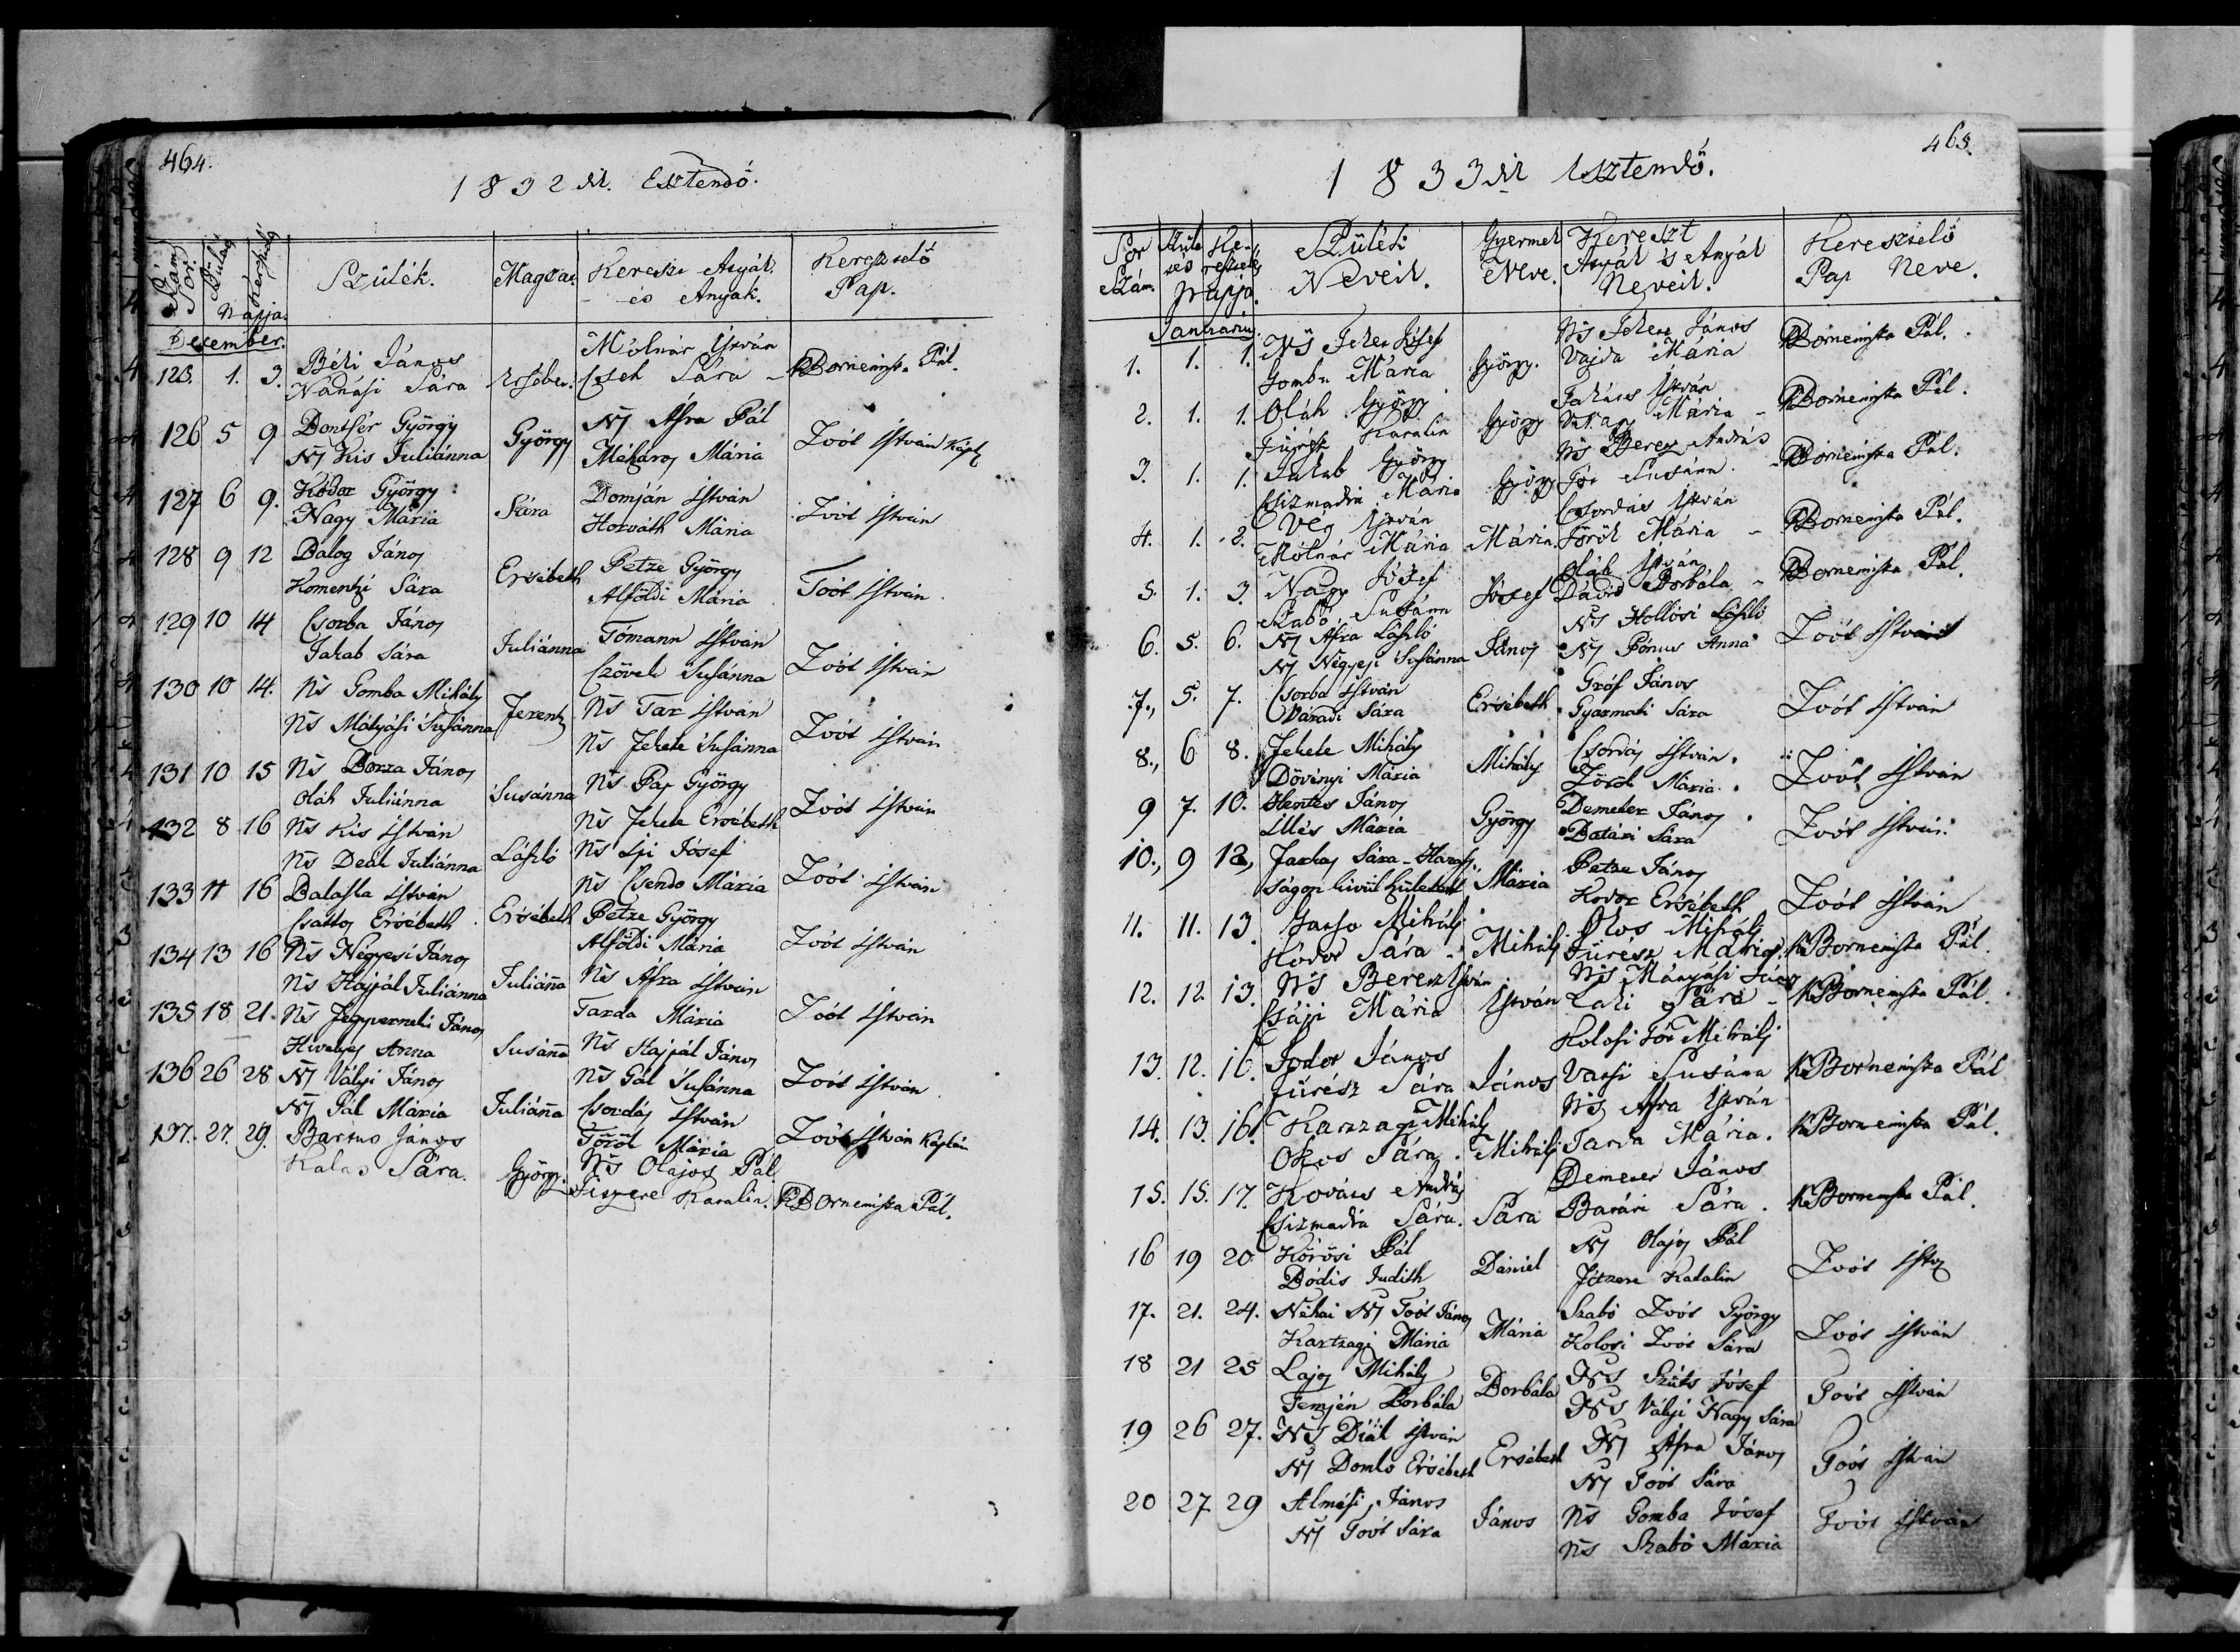 464.
1832 dik Esztendő.
Szám Sor. Születés Keresztelés Napja. Szülék. Magzat. Kereszt Atyák és Anyák. Keresztelő Pap.
December.
125. 1. 3. Béki János Ersébet. Molnár István
Nánási Sára Cseh Sára - Bornemisza Pál.
126 5 9 Dontsér György György Ns Áfra Pál Toót István Kápl
Ns Kis Juliánna Mészáros Mária
127 6 9. Kódor György Sára Domján István Toót István
Nagy Mária Horváth Mária
128 9 12 Balog János Ersébeth Petze György Toót István
Komentzi Sára Alföldi Mária
129 10 14 Csorba János Juliánna Tómann István Toót István
Jakab Sára Csövek Susánna
130 10 14. Ns Gomba Mihály Ferentz Ns Tar István Toót István
Ns Mátyási Susánna Ns Fekete Susánna
131 10 15 Ns Borza János Susánna Ns Pap György Toót István
Oláh Juliánna Ns Fekete Ersébeth
132 8 16 Ns Kis István László Ns Ipi Jósef Toót István
Ns Deák Juliánna Ns Csendo Mária
133 11 16 Balaska István Ersébeth Petze György Toót István
Csattos Ersébeth Alföldi Mária
134 13 16 Ns Négyesi János Juliána Ns Áfra István Toót István
Ns Hajpál Juliánna Tarda Mária
135 18 21. Ns Fegyverneki János Susána Ns Hajpál János Toót István
Hivelyes Anna Ns Gál Susánna
136 26 28 Ns Vályi János Juliána Csordás István Toót István Káplán
Ns Pál Mária Török Mária
137. 27. 29. Bartus János György. Ns Olajos Pál
Kalas Sára. Fitzere Katalin. Bornemisza Pál.
465.
1833dik Esztendő.
Sor Szám. Születés Keresztelés Napja. Szülék Neveik. Gyermek Neve. Kereszt Atyák és Anyák Neveik. Keresztelő Pap Neve.
Januarius.
1. 1. 1. Ns Feher Jósef György. Ns Feher János Bornemisza Pál.
Gomba Mária Vajda Mária
2. 1. 1. Oláh György György Takács István Bornemisza Pál.
Fürész Katalin Nagy Mária
3. 1. 1. Jakab György György Ns Berez András Bornemisza Pál.
Csizmadia Mária Susánna.
4. 1. 2. Vég István Mária. Csordás István Bornemisza Pál.
Molnár Mária Török Mária
5. 1. 3. Nagy Jósef Jósef Oláh István Bornemisza Pál.
Szabó Susánna Dávid Borbála
6. 5. 6. Ns Áfra László János Ns Hollósi László Toót István
Ns Négyesi Susánna Ns Pónus Anna
7., 5. 7. Csorba István Ersébeth Gróf János Toót István
Váradi Sára Gyarmati Sára
8., 6 8. Fekete Mihály Mihály Csordás István. Toót István
Dövényi Mária Török Mária.
9 7. 10. Hentes János György Demeter János Toót István
Illés Mária Batári Sára
10., 9 12, Farkas Sára - Házas Mária Petze János Toót István
ságon kivül született Kodor Ersébeth
11. 11. 13. Mihály Mihály Okos Mihály Bornemisza Pál.
Kódor Sára Fürész Mária
12. 12. 13. Ns Berez István István Ns Mányási János Bornemisza Pál.
Csáji Mária Laki Sára
13. 12. 16. Fodor János János Kolosi Toó Mihály Bornemisza Pál
Fürész Sára Vassi Susána
14. 13. 16. Karzagi Mihály Mihály Ns Afra István Bornemisza Pál.
Okos Sára. Tarda Mária.
15. 15. 17. Kovács András Sára Demeter János Bornemisza Pál.
Csizmadia Sára. Batári Sára.
16 19 20. Körösi Pál Dániel Ns Olajos Pál Toót Istv
Bódis Judith Fitzere Katalin
17. 21. 24. Néhai Ns Toót János Mária Szabó Toót György Toót István
Kartzagi Mária Kolosi Toót Sára
18 21 25 Lajos Mihály Borbála Ns Szűts Jósef Toót István
Temjén Borbála Ns Vályi Nagy Sára
19 26 27. Ns Diák István Ersébeth Ns Áfra János Toót István
Ns Domko Ersébeth Ns Toót Sára
20 27 29 Almási János János Ns Gomba Jósef Toót István
Ns Toót Sára Ns Szabó Mária